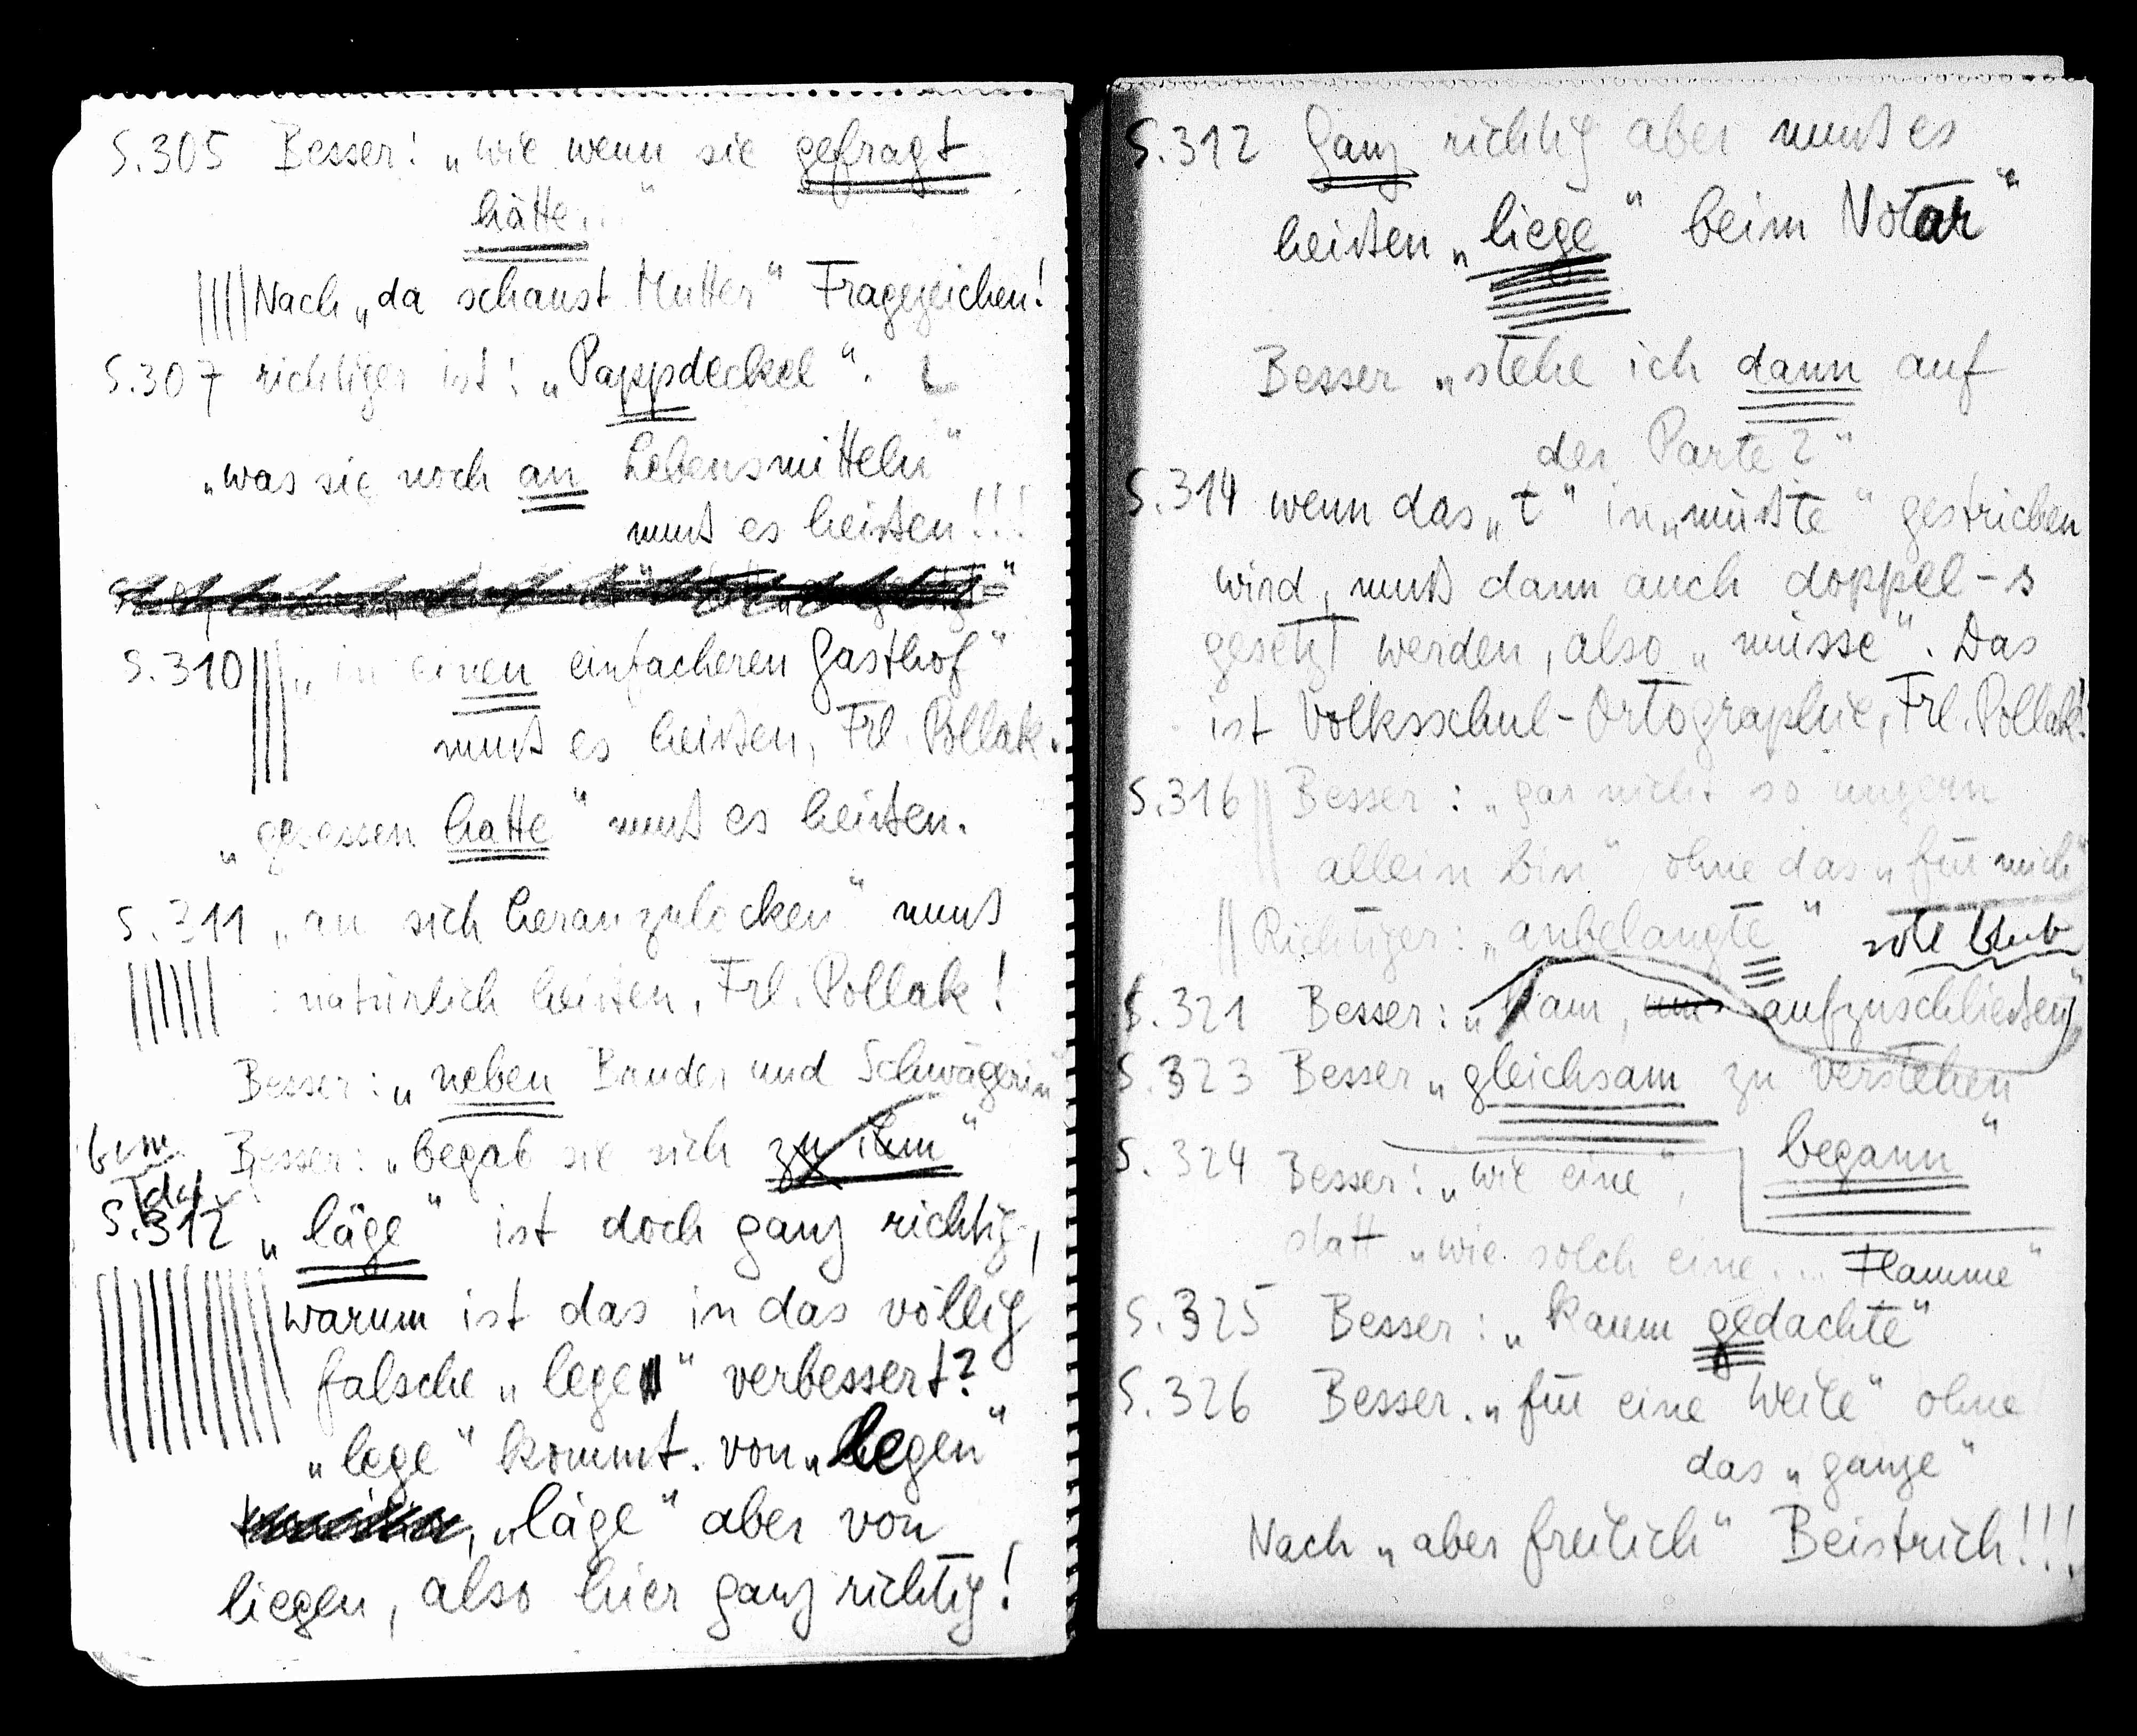 S.305 Besser: „wie wenn sie gefragt
hätte..."
Nach „da schaust Mutter" Fragezeichen!
S.307 richtiger ist: „Pappdeckel".
„was sie noch an Lebensmitteln"
muß es heißen!!!
S.310 „in einen einfacheren Gasthof"
muß es heißen, Frl. Pollak.
„gegessen hatte" muß es heißen.
S.311 „an sich heranzulocken" muß
natürlich heißen, Frl. Pollak!
Besser: „neben Bruder und Schwägerin"
Besser: „begab sie sich zu ihm"
S.312 „läge" ist doch ganz richtig,
warum ist das in das völlig
falsche „lege" verbessert?
„lege" kommt von „legen"
„läge" aber von
liegen, also hier ganz richtig!
S.312 Ganz richtig aber muß es
heißen „liege" beim Notar"
Besser „stehe ich dann auf
der Parte?"
S.314 wenn das „t" in „müßte" gestrichen
wird, muß dann auch doppel-s
gesetzt werden, also „müsse". Das
ist Volksschul-Ortographie, Frl. Pollak!
S.316 Besser: „gar nicht so ungern
allein bin" ohne das „für mich"
Richtiger: „anbelangte"
S.321 Besser: „kam, um aufzuschließen"
S.323 Besser „gleichsam zu verstehen
begann"
S.324 Besser: „wie eine",
statt „wie solch eine... Flamme"
S.325 Besser: „kaum gedachte"
S.326 Besser. „für eine Weile" ohne
das „ganze"
Nach „aber freilich" Beistrich!!!